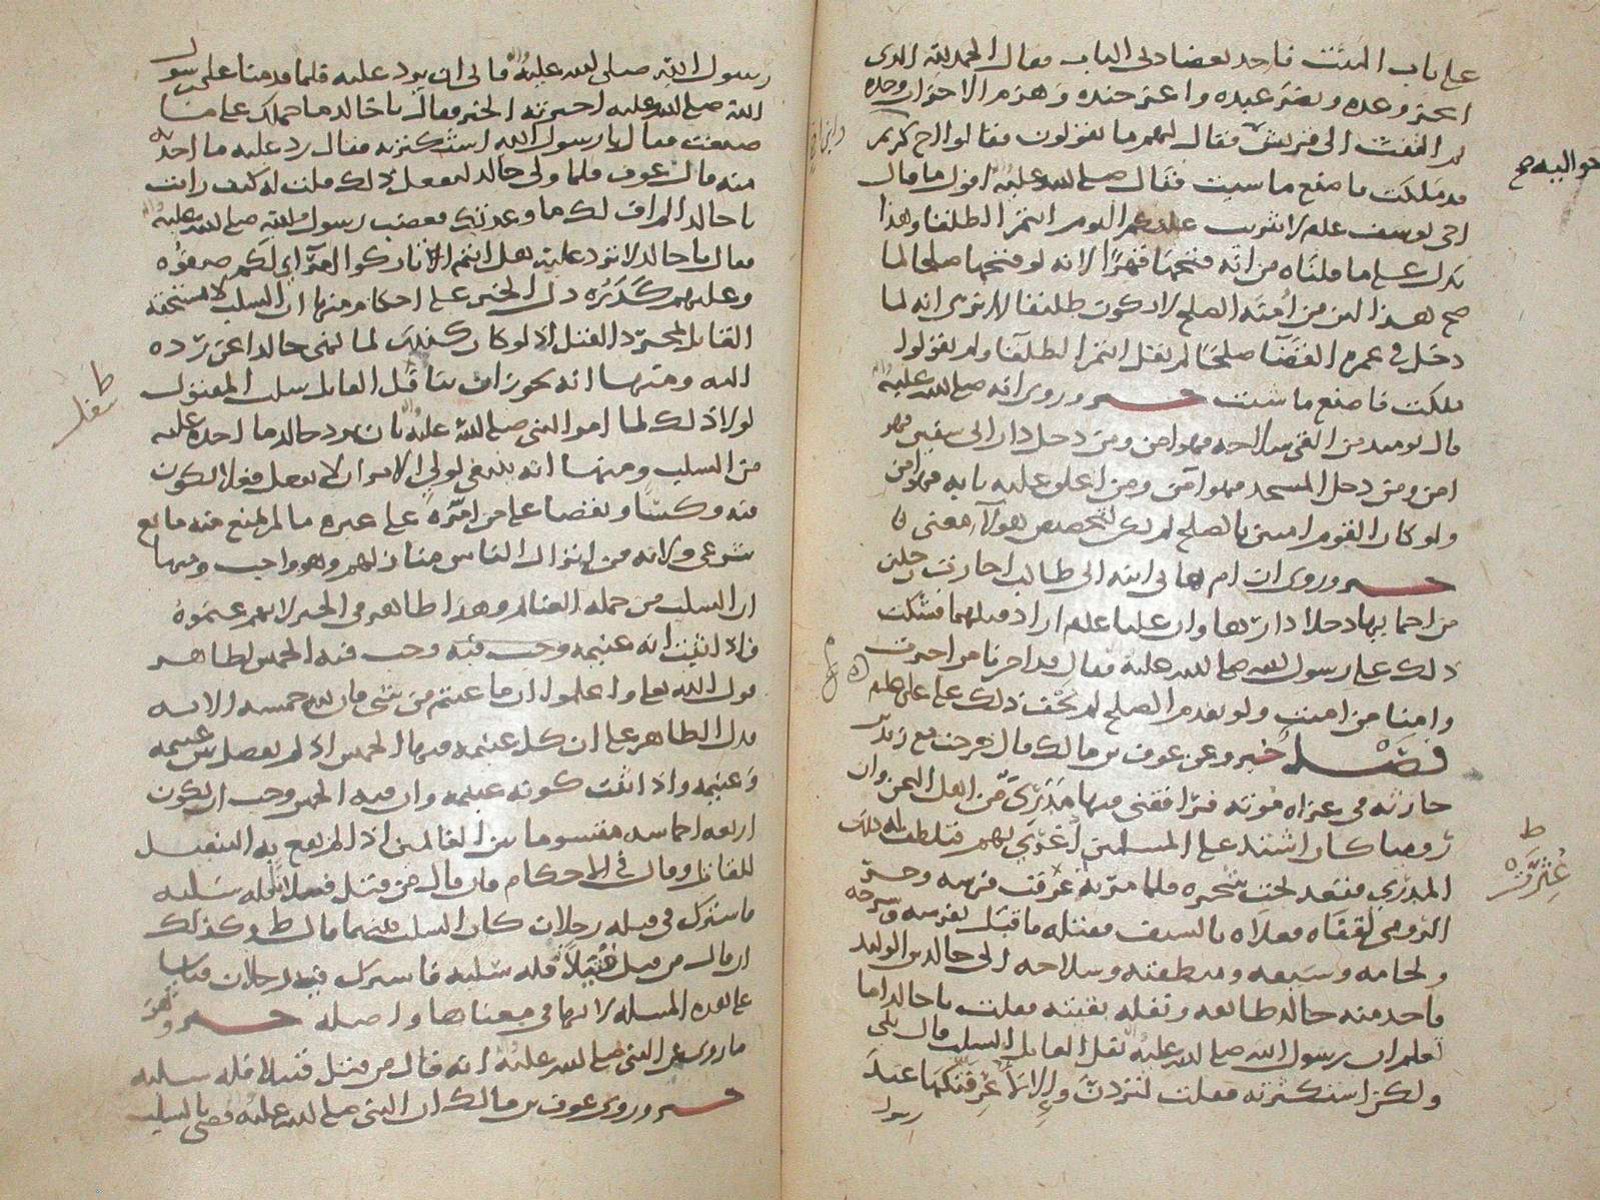 على باب البيت فاخذ بعضادتى الباب فقال الحمد لله الذى
انجز وعده ونصر عبده واعز جنده وهزم الاحزاب وحده
ثم التفت الى قريش فقال لهم ما تقولون فقالوا اخ كريم
قد ملكت فاصنع ما شيت فقال صلى الله عليه اقول ما قال
اخى يوسف علم لا تثريب عليكم اليوم انتم الطلقا وهذا
يدل على ما قلناه من انه فتحها قهرًا لانه لو فتحها صلحا لما
صح هذا المن من امنه الصلح لا يكون طليقا الا ترى انه لما
دخل فى عمرة القضآ صلحًا لم يقل انتم الطلقآ ولم يقولوا
ملكت فاصنع ما شيت خبر وروى انه صلى الله عليه
قال يوميد من القى سلاحه فهو امن ومن دخل دار ابى سفين فهو
امن ومن دخل المسجد فهو آمن ومن اغلق عليه بابه فهو امن
ولو كان القوم امنين بالصلح لم يكن لتخصيص هولآ معنى
خبر وروى ان ام هانى ابنه ابى طالب اجارت رجلين
من احمايها دخلا دارها وان عليا علم اراد قتلهما فشكت
ذلك على رسول الله صلى الله عليه فقال قد اجرنا من اجرت
وامنا من امنت ولو تقدم الصلح لم يخف ذلك على على علم
فصل خبر وعن عوف بن مالك قال خرجت مع زيد بن
حارثه فى غزاه موته فرافقنى فيها مددى من اهل اليمن وان
روميا كان اشتد على المسلمين اغرى بهم فتلطف له ذلك
المددى فقعد تحت شجره فلما مر به عرقب فرسه وخر
الرومى لقفاه فعلاه بالسيف فقتله فاقبل بفرسه وسرجه
ولجامه وسيفه ومنطقته وسلاحه الى خالد بن الوليد
فاخذ منه خالد طائفه ونفله بقيته فقلت يا خالد اما
تعلم ان رسول الله صلى الله عليه نفل القاتل السلب قال بلى
ولكن استكثرته فقلت لتردن والا لاعرفنكها عند
رسول
حواليه صح
ط
عرقب
رسول الله صلى الله عليه فابى ان يرد عليه فلما قدمنا على رسول
الله صلى الله عليه اخبرته الخبر فقال يا خالد ما حملك على ما
صنعت فقال يا رسول الله استكثرته فقال رد عليه ما اخذته
منه قال عوف فلما ولى خالد ليفعل ذلك قلت له كيف رايت
يا خالد الم اف لك ما وعدتك فغضب رسول الله صلى الله عليه
فقال يا خالد لا ترد عليه هل انتم تاركوا امرآى لكم صفوه
وعليهم كدره دل الخبر على احكام منها ان السلب لا يستحقه
القاتل بمجرد القتل اذ لو كان كذلك لما نهى خالدا عن رده
اليه ومنها انه يجوز ان ينفل القاتل سلب المقتول
لولا ذلك لما امر النبى صلى الله عليه بان يرد خالد ما اخذه عليه
من السلب ومنها انه ينبغى لولى الامر ان لا يفعل فعلا يكون
فيه وكسًا ونقضا على من امّره على غيره ما لم يمنع منه مانع
شرعى ولانه من انزال الناس منازلهم وهو واجب ومنها
ان السلب من جمله الغنائم وهذا ظاهر فى الخبر لانهم غنموه
فاذا ثبت انه غنيمه وجب فيه وجب فيه الخمس لظاهر
قول الله تعالى واعلموا ان ما غنمتم من شى فان لله خمسه الايه
فدل الظاهر على ان كل غنيمه فيها الخمس اذ لم يفصل بين غنيمه
وغنيمه واذا ثبت كونه غنيمه وان فيه الخمس وجب ان يكون
اربعه اخماسه مقسوما بين الغانمين اذا لم يقع به التنفيل
للقاتل وقال فى الاحكام فان قال من قتل قتيلا فله سلبه
فاشترك فى قتله رجلان كان السلب بينهما قال ط وكذلك
ان قال من قتل قتيلًا فله سلبه فاشترك فيه رجلان قياسا
على هذه المسله لانها فى معناها واصله خبر وهو
ما روى عن النبى صلى الله عليه انه قال من قتل قتيلا فله سلبه
خبر وروى عوف بن مالك ان النبى صلى الله عليه قضى بالسلب
ط